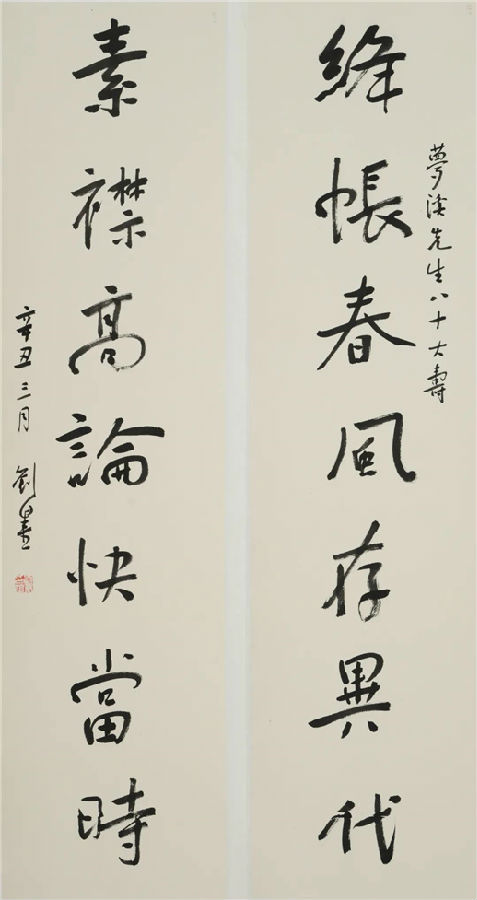 夢溪先生八十大壽
絳帳春風存異代
素襟高論快當時
辛丑三月 劉墨